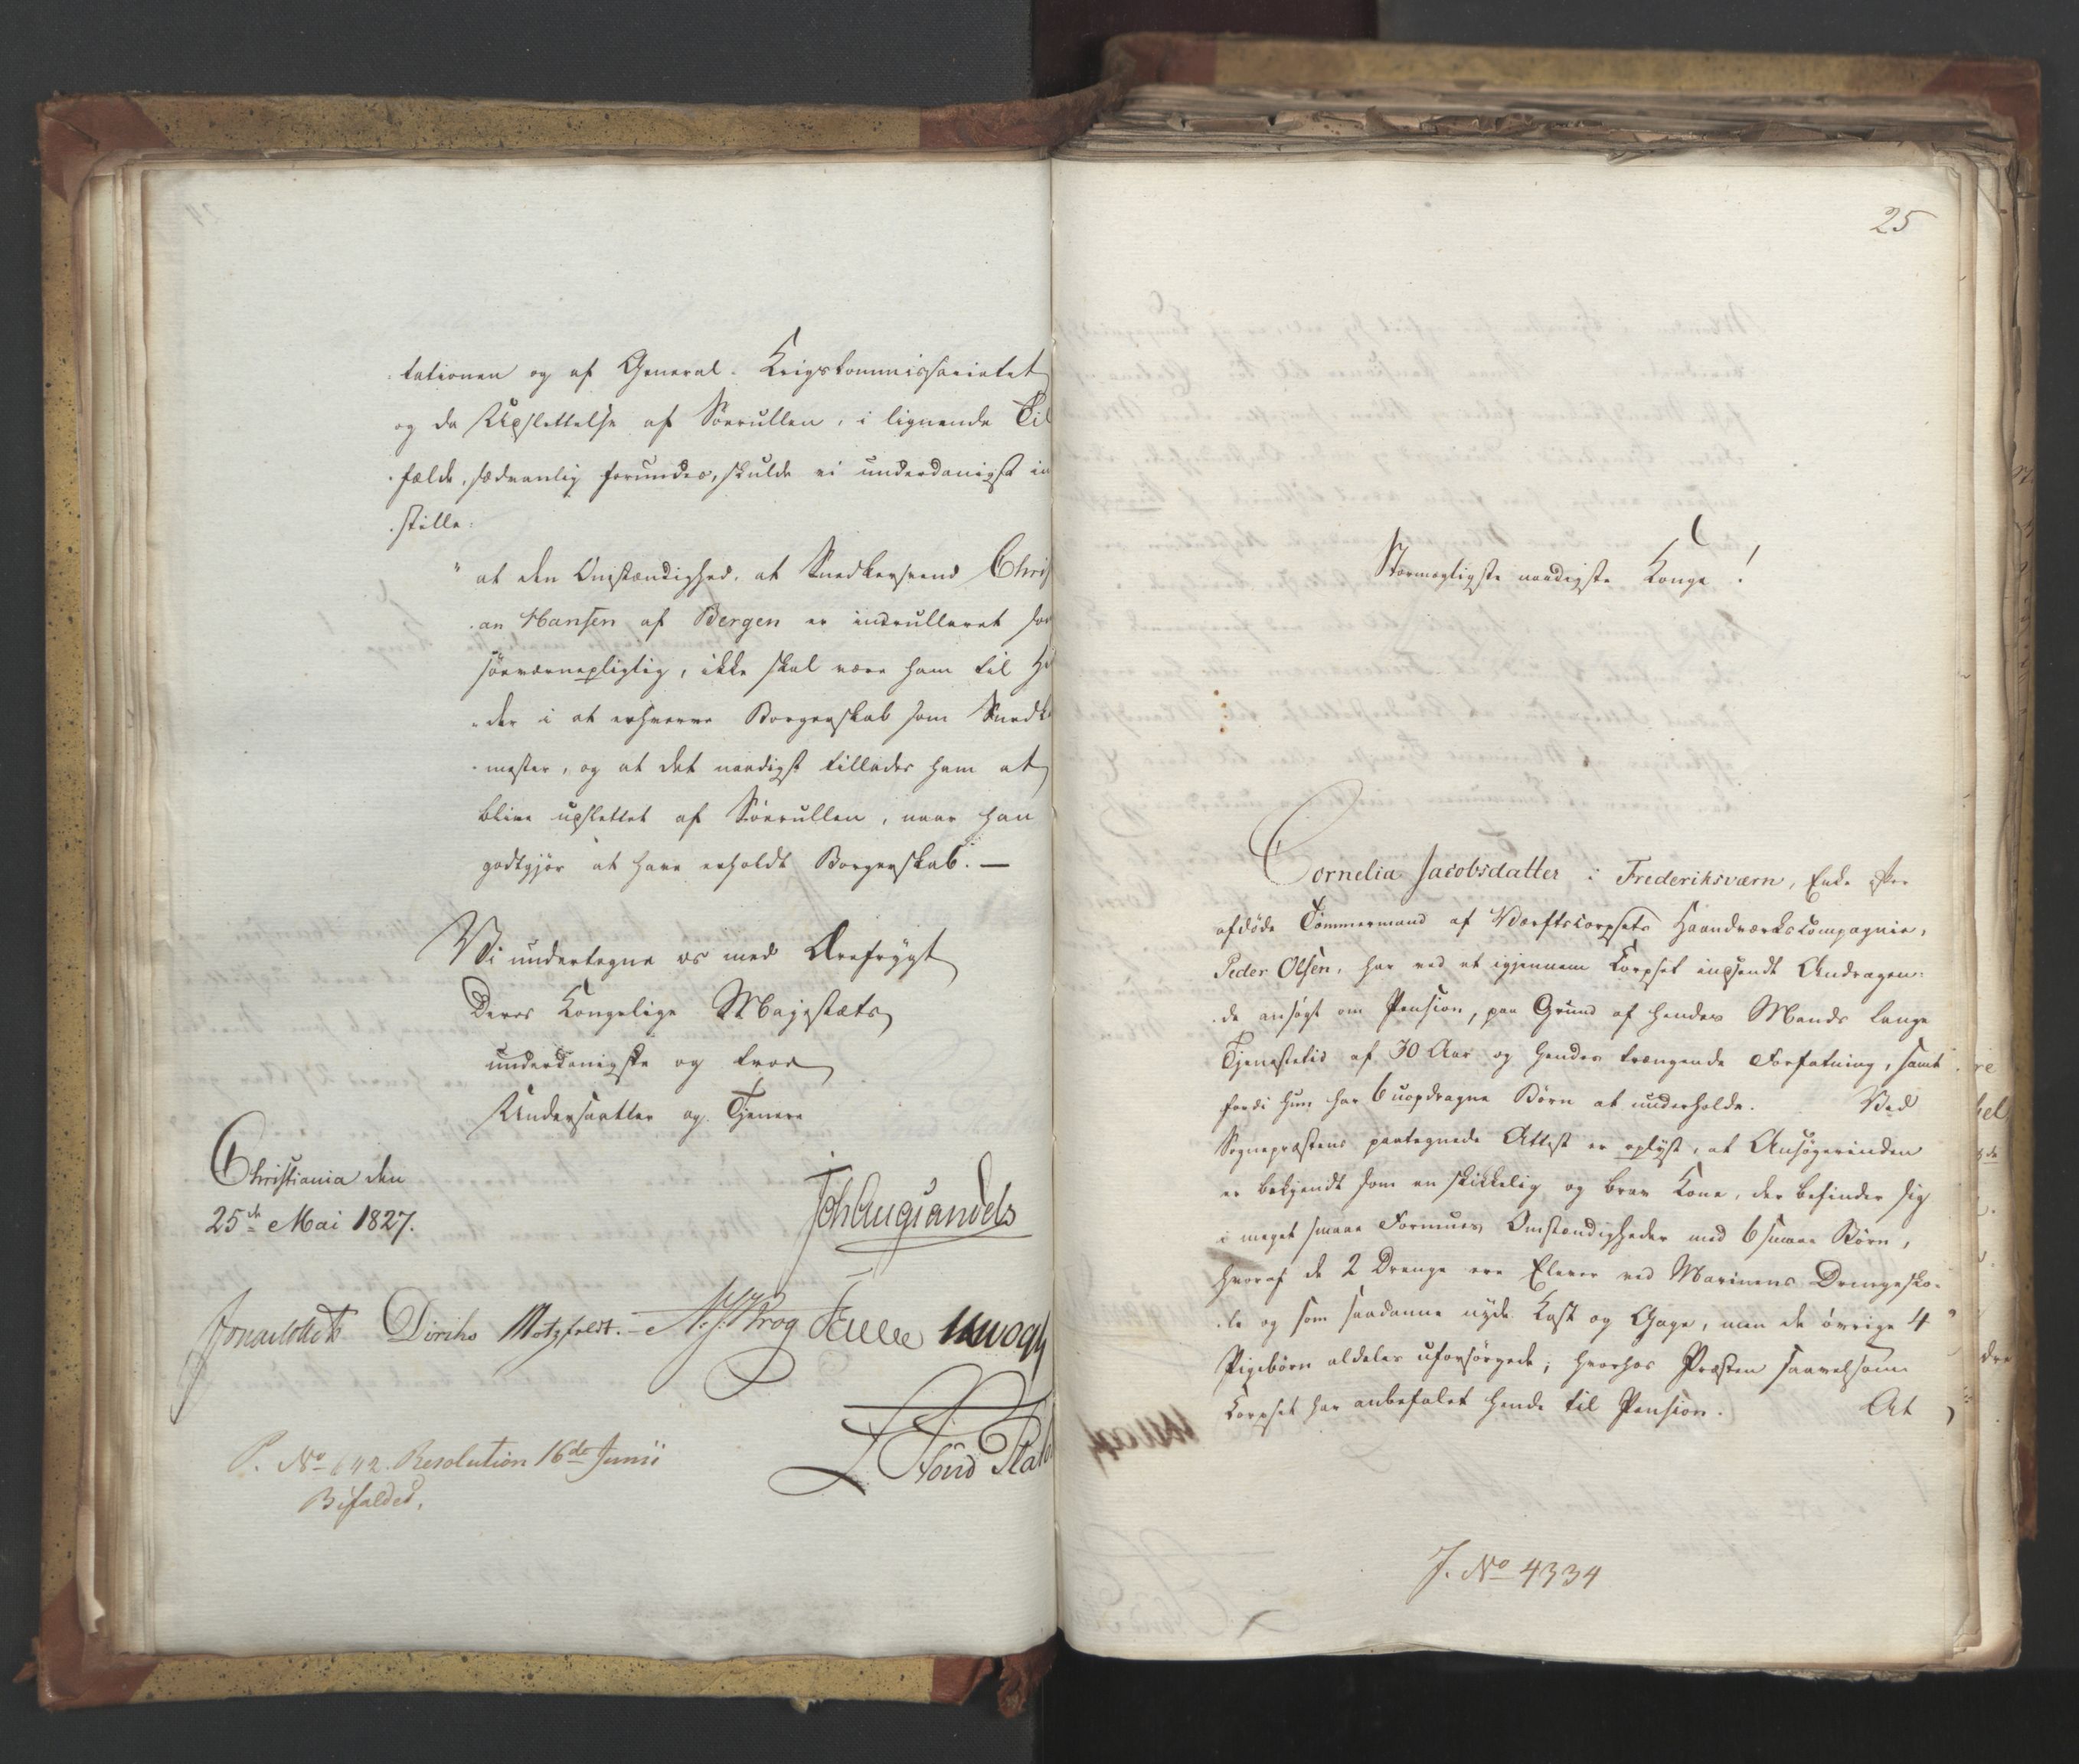 tationen og af General-Krigskommissariatet
og da Udslettelse af Sörullen, i lignende Til
fælde, sædvanlig forundes, skulde vi underdanigst in
stille:
" at den Omstændighed, at Snedkersvend Chris
an Hansen af Bergen er indrulleret som
söeværnepligtig, ikke skal være ham til Hi
der i at erhverve Borgerskab som Snedke
mester, og at det naadigst tillades ham at
blive udslettet af Sörullen, naar han
godtgjör at have erholdt Borgerskab. —
Vi undertegne os med Ærefrygt
Deres Kongelige Majestæts
underdanigste og troe
Undersaatter og Tjenere
Christiania den
25de Mai 1827.
Joh Aug Sandels
Jonas Collett Diriks Motzfeldt. N. J. Krog
P. No 642. Resolution 16de Junii
Bifaldes.
25
Stormægtigste naadigste Konge!
Cornelia Jacobsdatter i Frederiksværn, Enke efter
afdöde Tömmermand af Værftscorpsets Haandværkscompagnie,
Peder Olsen, har ved et igjennem Korpset indsendt Andragen-
de ansögt om Pension, paa Grund af hendes Mands lange
Tjenestetid af 30 Aar og hendes trængende Forfatning, samt
fordi hun har 6 uopdragne Börn at underholde. Ved
Sognepræstens paategnede Attest er oplyst, at Ansögerinden
er bekjendt som en skikkelig og brav Kone, der befinder sig
i meget smaae Formues Omstændigheder med 6 smaae Börn,
hvoraf de 2 Drenge ere Elever ved Marinens Drengesko-
le og som saadanne nyde Kost og Gage, men de övrige 4
Pigebörn aldeles uforsörgede; hvorhos Præsten saavelsom
Korpset har anbefalet hende til Pension. At
J. No 4334